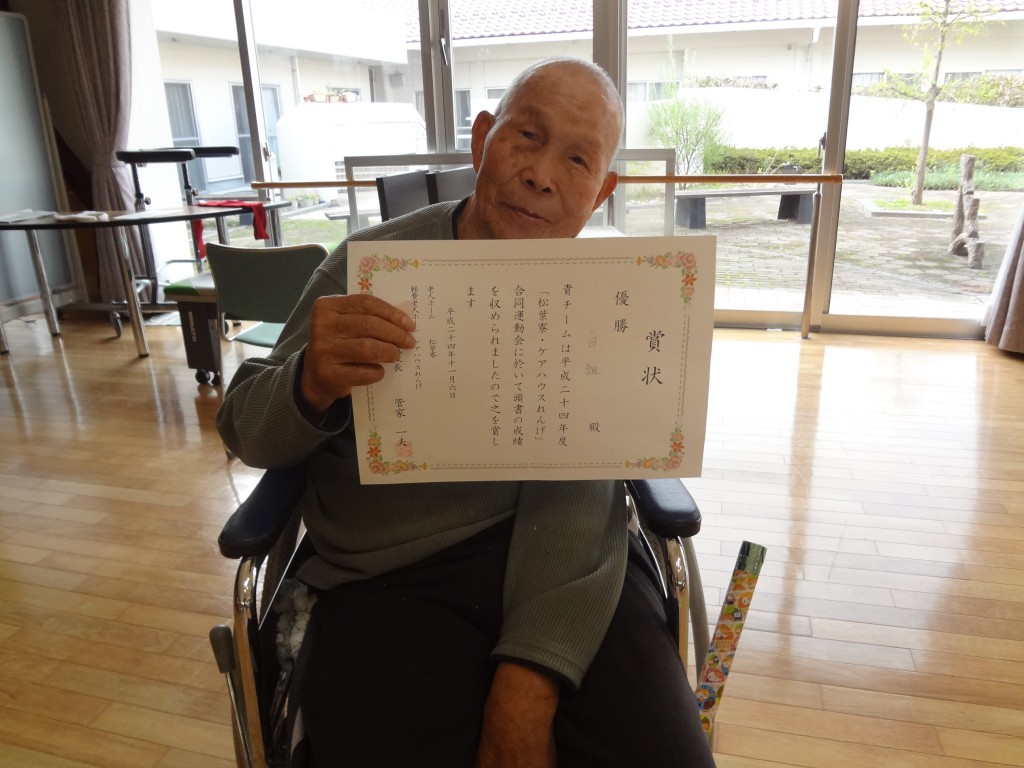 賞状
優勝
殿
青チームは平成二十四年度
「松葉寮・ケアハウスれんげ」
合同運動会に於いて頭書の成績
を収められましたので之を賞し
ます
平成二十四年十一月六日
老人ホーム 松葉寮
軽費老人ホーム ハウスれんげ
長 管家 一夫